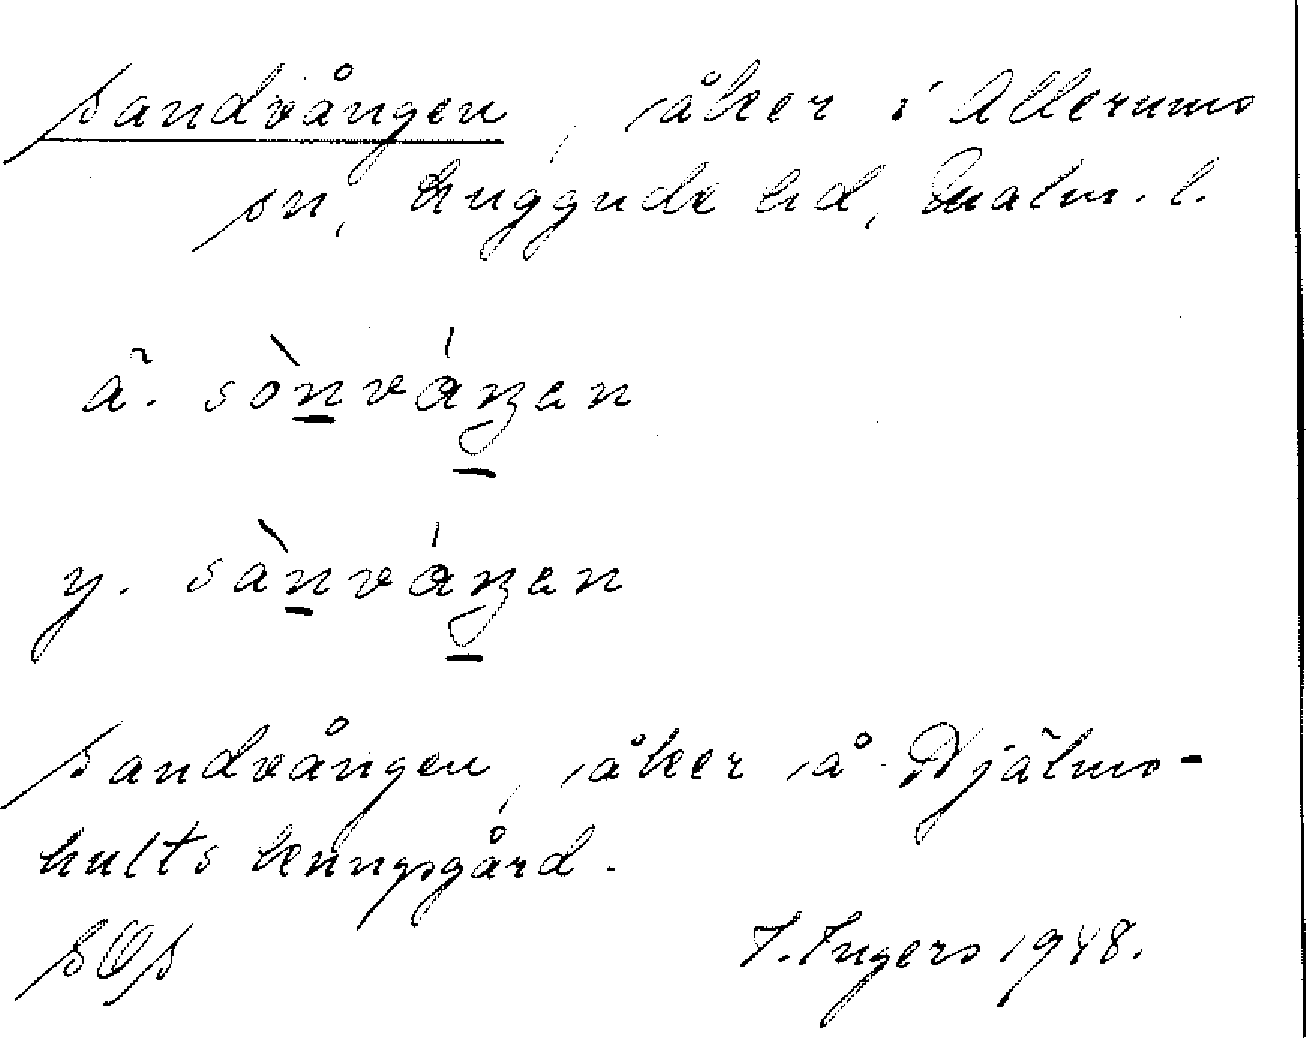 Sandvången, åker i Allerums
sn, Luggude hd, Malm. l.
ä. sònváŋen
y. sànváŋen
Sandvången, åker å Hjälms-
hults kungsgård.
SOS I. Ingers 1948.